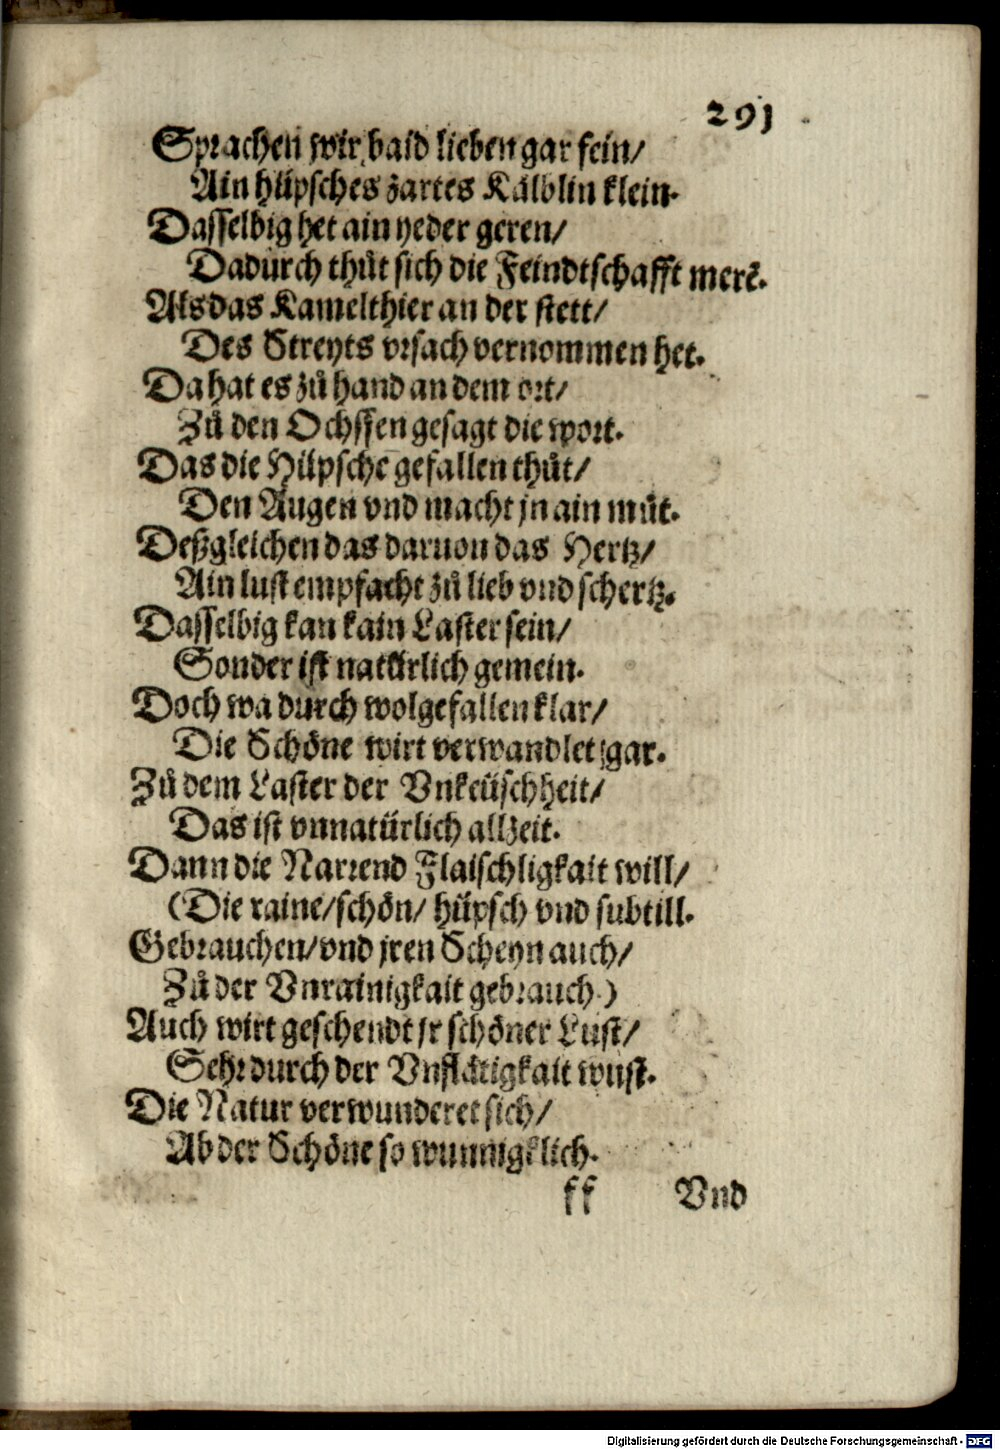 291
Sprachen wir baid lieben gar fein/
Ain hüpsches zartes Kälblin klein.
Dasselbig het ain yeder geren/
Dadurch thůt sich die Feindtschafft merē.
Als das Kamelthier an der stett/
Des Streyts vrsach vernommen het.
Da hat es zů hand an dem ort/
Zů den Ochssen gesagt die wort.
Das die Hüpsche gefallen thůt/
Den Augen vnd macht jn ain můt.
Deßgleichen das daruon das Hertz/
Ain lust empfacht zů lieb vnd schertz.
Dasselbig kan kain Laster sein/
Sonder ist natürlich gemein.
Doch wa durch wolgefallen klar/
Die Schöne wirt verwandlet gar.
Zů dem Laster der Vnkeüschheit/
Das ist vnnatürlich allzeit.
Dann die Narrend Flaischligkait will/
(Die raine/schön/ hüpsch vnd subtill.
Gebrauchen/vnd jren Scheyn auch/
Zů der Vnrainigkait gebrauch.)
Auch wirt geschendt jr schöner Lust/
Sehr durch der Vnflätigkait wust.
Die Natur verwunderet sich/
Ab der Schöne so wunnigklich.
ff Vnd
Digitalisierung gefördert durch die Deutsche Forschungsgemeinschaft - DFG